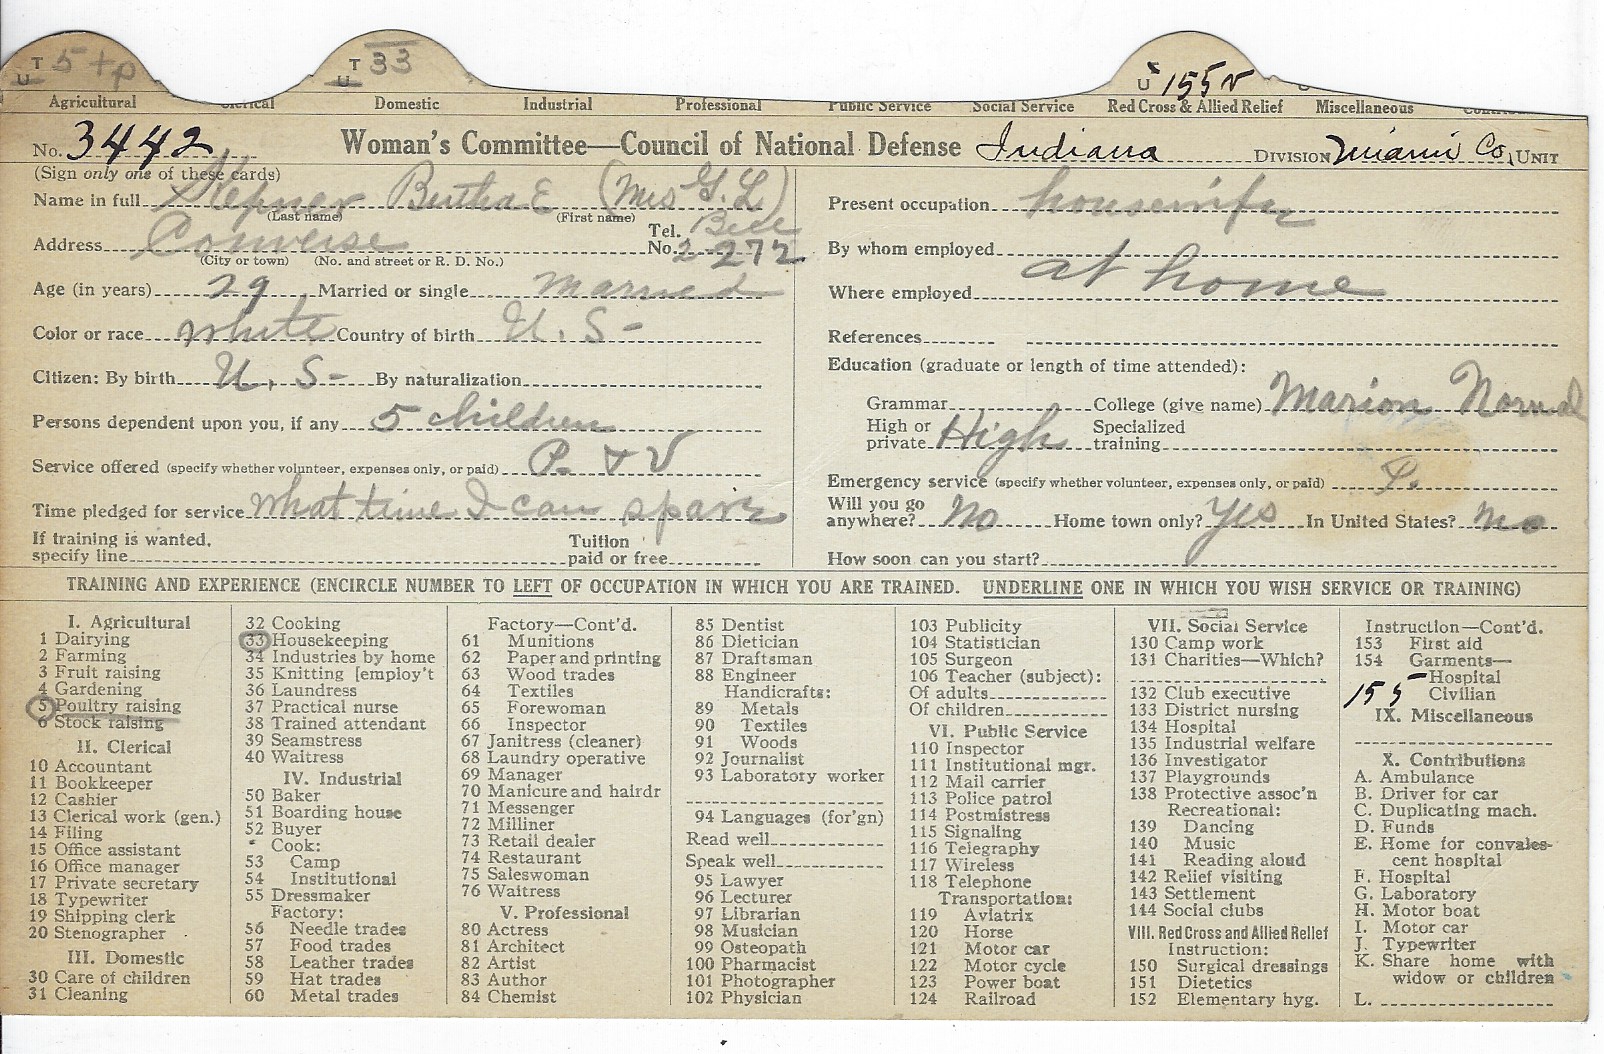 T U 5 + p T U 33 U 155 v
Agricultural Clerical Domestic Industrial Professional Public Service Social Service Red Cross & Allied Relief Miscellaneous
No. 3442 Woman's Committee—Council of National Defense Indiana DIVISION Miami Co. UNIT
(Sign only one of these cards)
Name in full Bertha E (Mrs G. L)
(Last name) (First name)
Address Converse Tel. No. Bell 2 272
(City or town) (No. and street or R. D. No.)
Age (in years) 29 Married or single married
Color or race white Country of birth U. S-
Citizen: By birth U. S- By naturalization
Persons dependent upon you, if any 5 children
Service offered (specify whether volunteer, expenses only, or paid) P. + V
Time pledged for service what time I can spare
If training is wanted, specify line Tuition paid or free
Present occupation housewife
By whom employed
Where employed at home
References
Education (graduate or length of time attended):
Grammar College (give name) Marion Normal
High or private High Specialized training
Emergency service (specify whether volunteer, expenses only, or paid) P.
Will you go anywhere? No Home town only? Yes In United States? no
How soon can you start?
TRAINING AND EXPERIENCE (ENCIRCLE NUMBER TO LEFT OF OCCUPATION IN WHICH YOU ARE TRAINED. UNDERLINE ONE IN WHICH YOU WISH SERVICE OR TRAINING)
I. Agricultural
1 Dairying
2 Farming
3 Fruit raising
4 Gardening
5 Poultry raising
6 Stock raising
II. Clerical
10 Accountant
11 Bookkeeper
12 Cashier
13 Clerical work (gen.)
14 Filing
15 Office assistant
16 Office manager
17 Private secretary
18 Typewriter
19 Shipping clerk
20 Stenographer
III. Domestic
30 Care of children
31 Cleaning
32 Cooking
33 Housekeeping
34 Industries by home
35 Knitting [employ't
36 Laundress
37 Practical nurse
38 Trained attendant
39 Seamstress
40 Waitress
IV. Industrial
50 Baker
51 Boarding house
52 Buyer
Cook:
53 Camp
54 Institutional
55 Dressmaker
Factory:
56 Needle trades
57 Food trades
58 Leather trades
59 Hat trades
60 Metal trades
Factory—Cont'd.
61 Munitions
62 Paper and printing
63 Wood trades
64 Textiles
65 Forewoman
66 Inspector
67 Janitress (cleaner)
68 Laundry operative
69 Manager
70 Manicure and hairdr
71 Messenger
72 Milliner
73 Retail dealer
74 Restaurant
75 Saleswoman
76 Waitress
V. Professional
80 Actress
81 Architect
82 Artist
83 Author
84 Chemist
85 Dentist
86 Dietician
87 Draftsman
88 Engineer
Handicrafts:
89 Metals
90 Textiles
91 Woods
92 Journalist
93 Laboratory worker
94 Languages (for'gn)
Read well
Speak well
95 Lawyer
96 Lecturer
97 Librarian
98 Musician
99 Osteopath
100 Pharmacist
101 Photographer
102 Physician
103 Publicity
104 Statistician
105 Surgeon
106 Teacher (subject):
Of adults
Of children
VI. Public Service
110 Inspector
111 Institutional mgr.
112 Mail carrier
113 Police patrol
114 Postmistress
115 Signaling
116 Telegraphy
117 Wireless
118 Telephone
Transportation:
119 Aviatrix
120 Horse
121 Motor car
122 Motor cycle
123 Power boat
124 Railroad
VII. Social Service
130 Camp work
131 Charities—Which?
132 Club executive
133 District nursing
134 Hospital
135 Industrial welfare
136 Investigator
137 Playgrounds
138 Protective assoc'n
Recreational:
139 Dancing
140 Music
141 Reading aloud
142 Relief visiting
143 Settlement
144 Social clubs
VIII. Red Cross and Allied Relief
Instruction:
150 Surgical dressings
151 Dietetics
152 Elementary hyg.
Instruction—Cont'd.
153 First aid
154 Garments—
Hospital
155 Civilian
IX. Miscellaneous
X. Contributions
A. Ambulance
B. Driver for car
C. Duplicating mach.
D. Funds
E. Home for convales-
cent hospital
F. Hospital
G. Laboratory
H. Motor boat
I. Motor car
J. Typewriter
K. Share home with
widow or children
L.